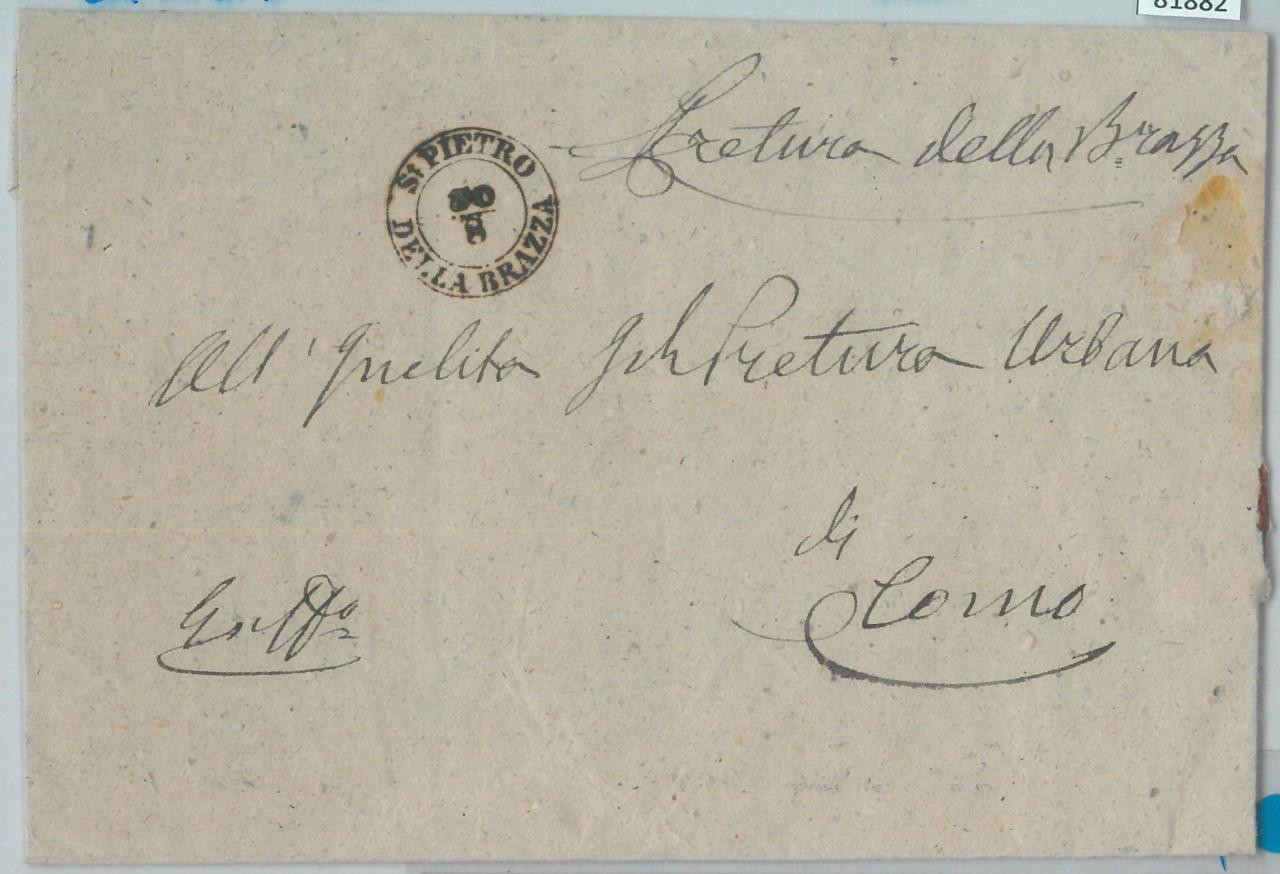 81882
Pretura della Brazza
St PIETRO
30
8
DELLA BRAZZA
All' Inclita Pretura Urbana
di
Como